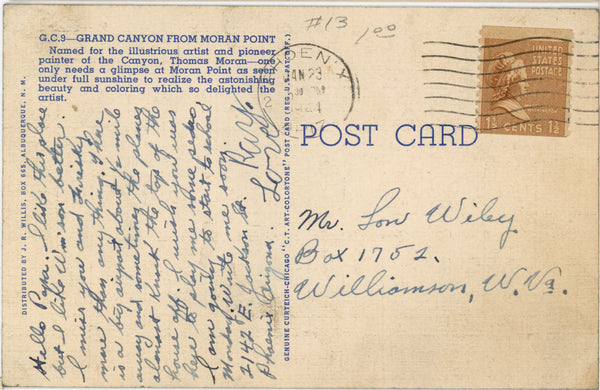 G.C.9—GRAND CANYON FROM MORAN POINT
Named for the illustrious artist and pioneer
painter of the Canyon, Thomas Moran—one
only needs a glimpse at Moran Point as seen
under full sunshine to realize the astonishing
beauty and coloring which so delighted the
artist.
DISTRIBUTED BY J. R. WILLIS, BOX 665, ALBUQUERQUE, N. M.
Hello Papa. I like this place
but I like W'mson better.
I miss you and
more than anything. There
is a big airport about ½ mile
away and sometimes the planes
almost knock the top of the
house off. I wish you was
here to play me some
I am going to start to school
Monday. Write me soon.
2142 E. Jackson St.
Phoenix Arizona.
Love
Ray.
GENUINE CURTEICH-CHICAGO "C.T. ART-COLORTONE" POST CARD (REG. U.S. PAT. OFF.)
#13
1.00
JAN 23
UNITED
STATES
POSTAGE
1½ CENTS 1½
POST CARD
Mr. Lon Wiley
Box 1752.
Williamson, W. Va.